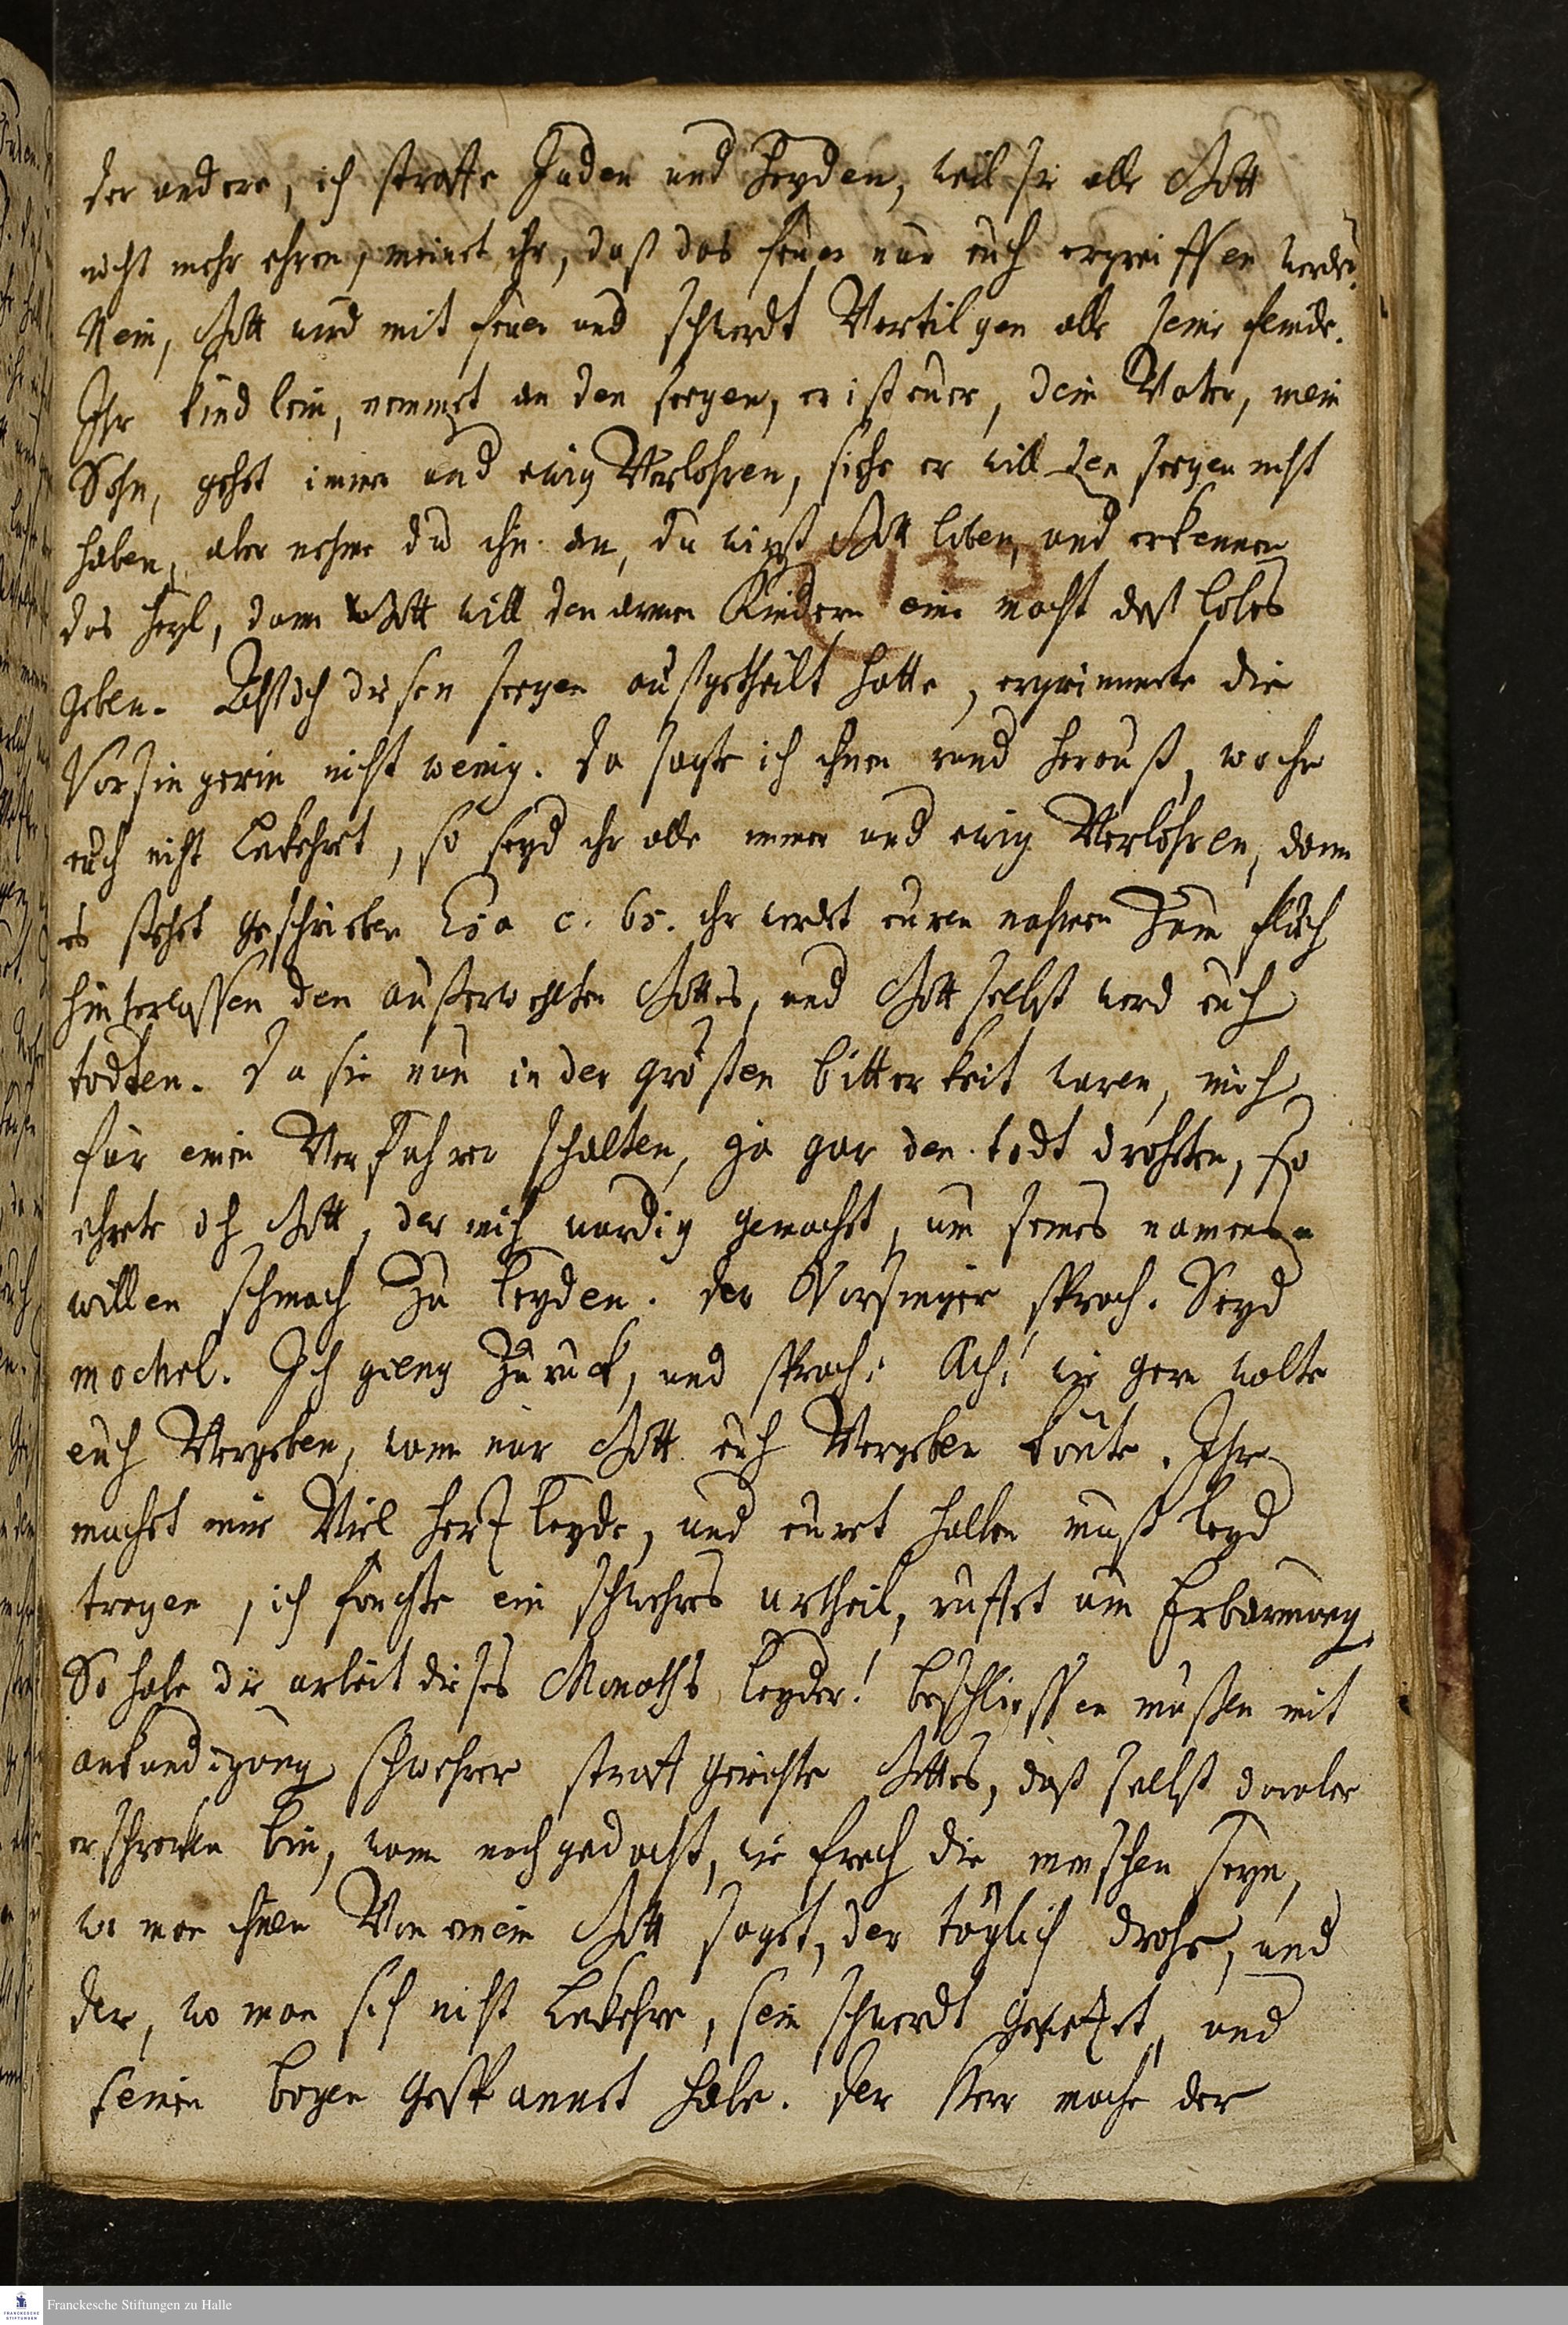 der andere, ich straffe Juden und Heyden, weil sie alle Gott
nicht mehr ehren, meinet ihr, daß das feuer nur euch ergreiffen werde?
Nein, Gott wird mit feuer und schwerdt Vertilgen alle seine feinde.
Ihr kindlein, nemmet an den seegen, er ist euer, dein Vater, mein
Sohn, gehet immer und ewig Verlohren, siehe er will den seegen nicht
haben, aber nehme du ihn an, du wirst Gott loben, und erkennen
das heyl, dann Gott will den armen Kindern eine macht deß lobes
geben. Alß ich diesen seegen außgetheilt hatte, ergrimmete die
Vorsingerin nicht wenig. Da sagte ich ihnen rund herauß, wo ihr
euch nicht bekehret, so seyd ihr alle immer und ewig Verlohren, dann
es stehet geschrieben Esa c. 65. ihr werdet euren nahmen zum fluch
hinterlassen den außerwehlten Gottes, und Gott selbst werd euch
tödten. Da sie nun in der grösten bitterkeit waren, mich
für einen Verführer schalten, ja gar den todt droheten, so
ehrete ich Gott, der mich würdig gemacht, um seines namens
willen schmach zu leyden. Der Vorsinger sprach. Seyd
mochel. Ich gieng zurück, und sprach: Ach! wie gern wolte
euch Vergeben, wann nur Gott euch Vergeben könte. Ihr
machet mir Viel hertzleyde, und euret halben muß leyd
tragen, ich förchte ein schwehres urtheil, ruffet um Erbarmung.
So habe die arbeit dieses Monaths leyder! beschliessen müßen mit
ankündigung schwehrer straff gerichte Gottes, daß selbst darober
erschrocken bin, wann nachgedacht, wie frech die menschen seyn,
wo man ihnen Von einem Gott saget, der täglich drohe, und
der, wo man sich nicht bekehre, sein schwerdt gewetzet, und
seinen bogen gespannet habe. Der Herr mache der
Franckesche Stiftungen zu Halle